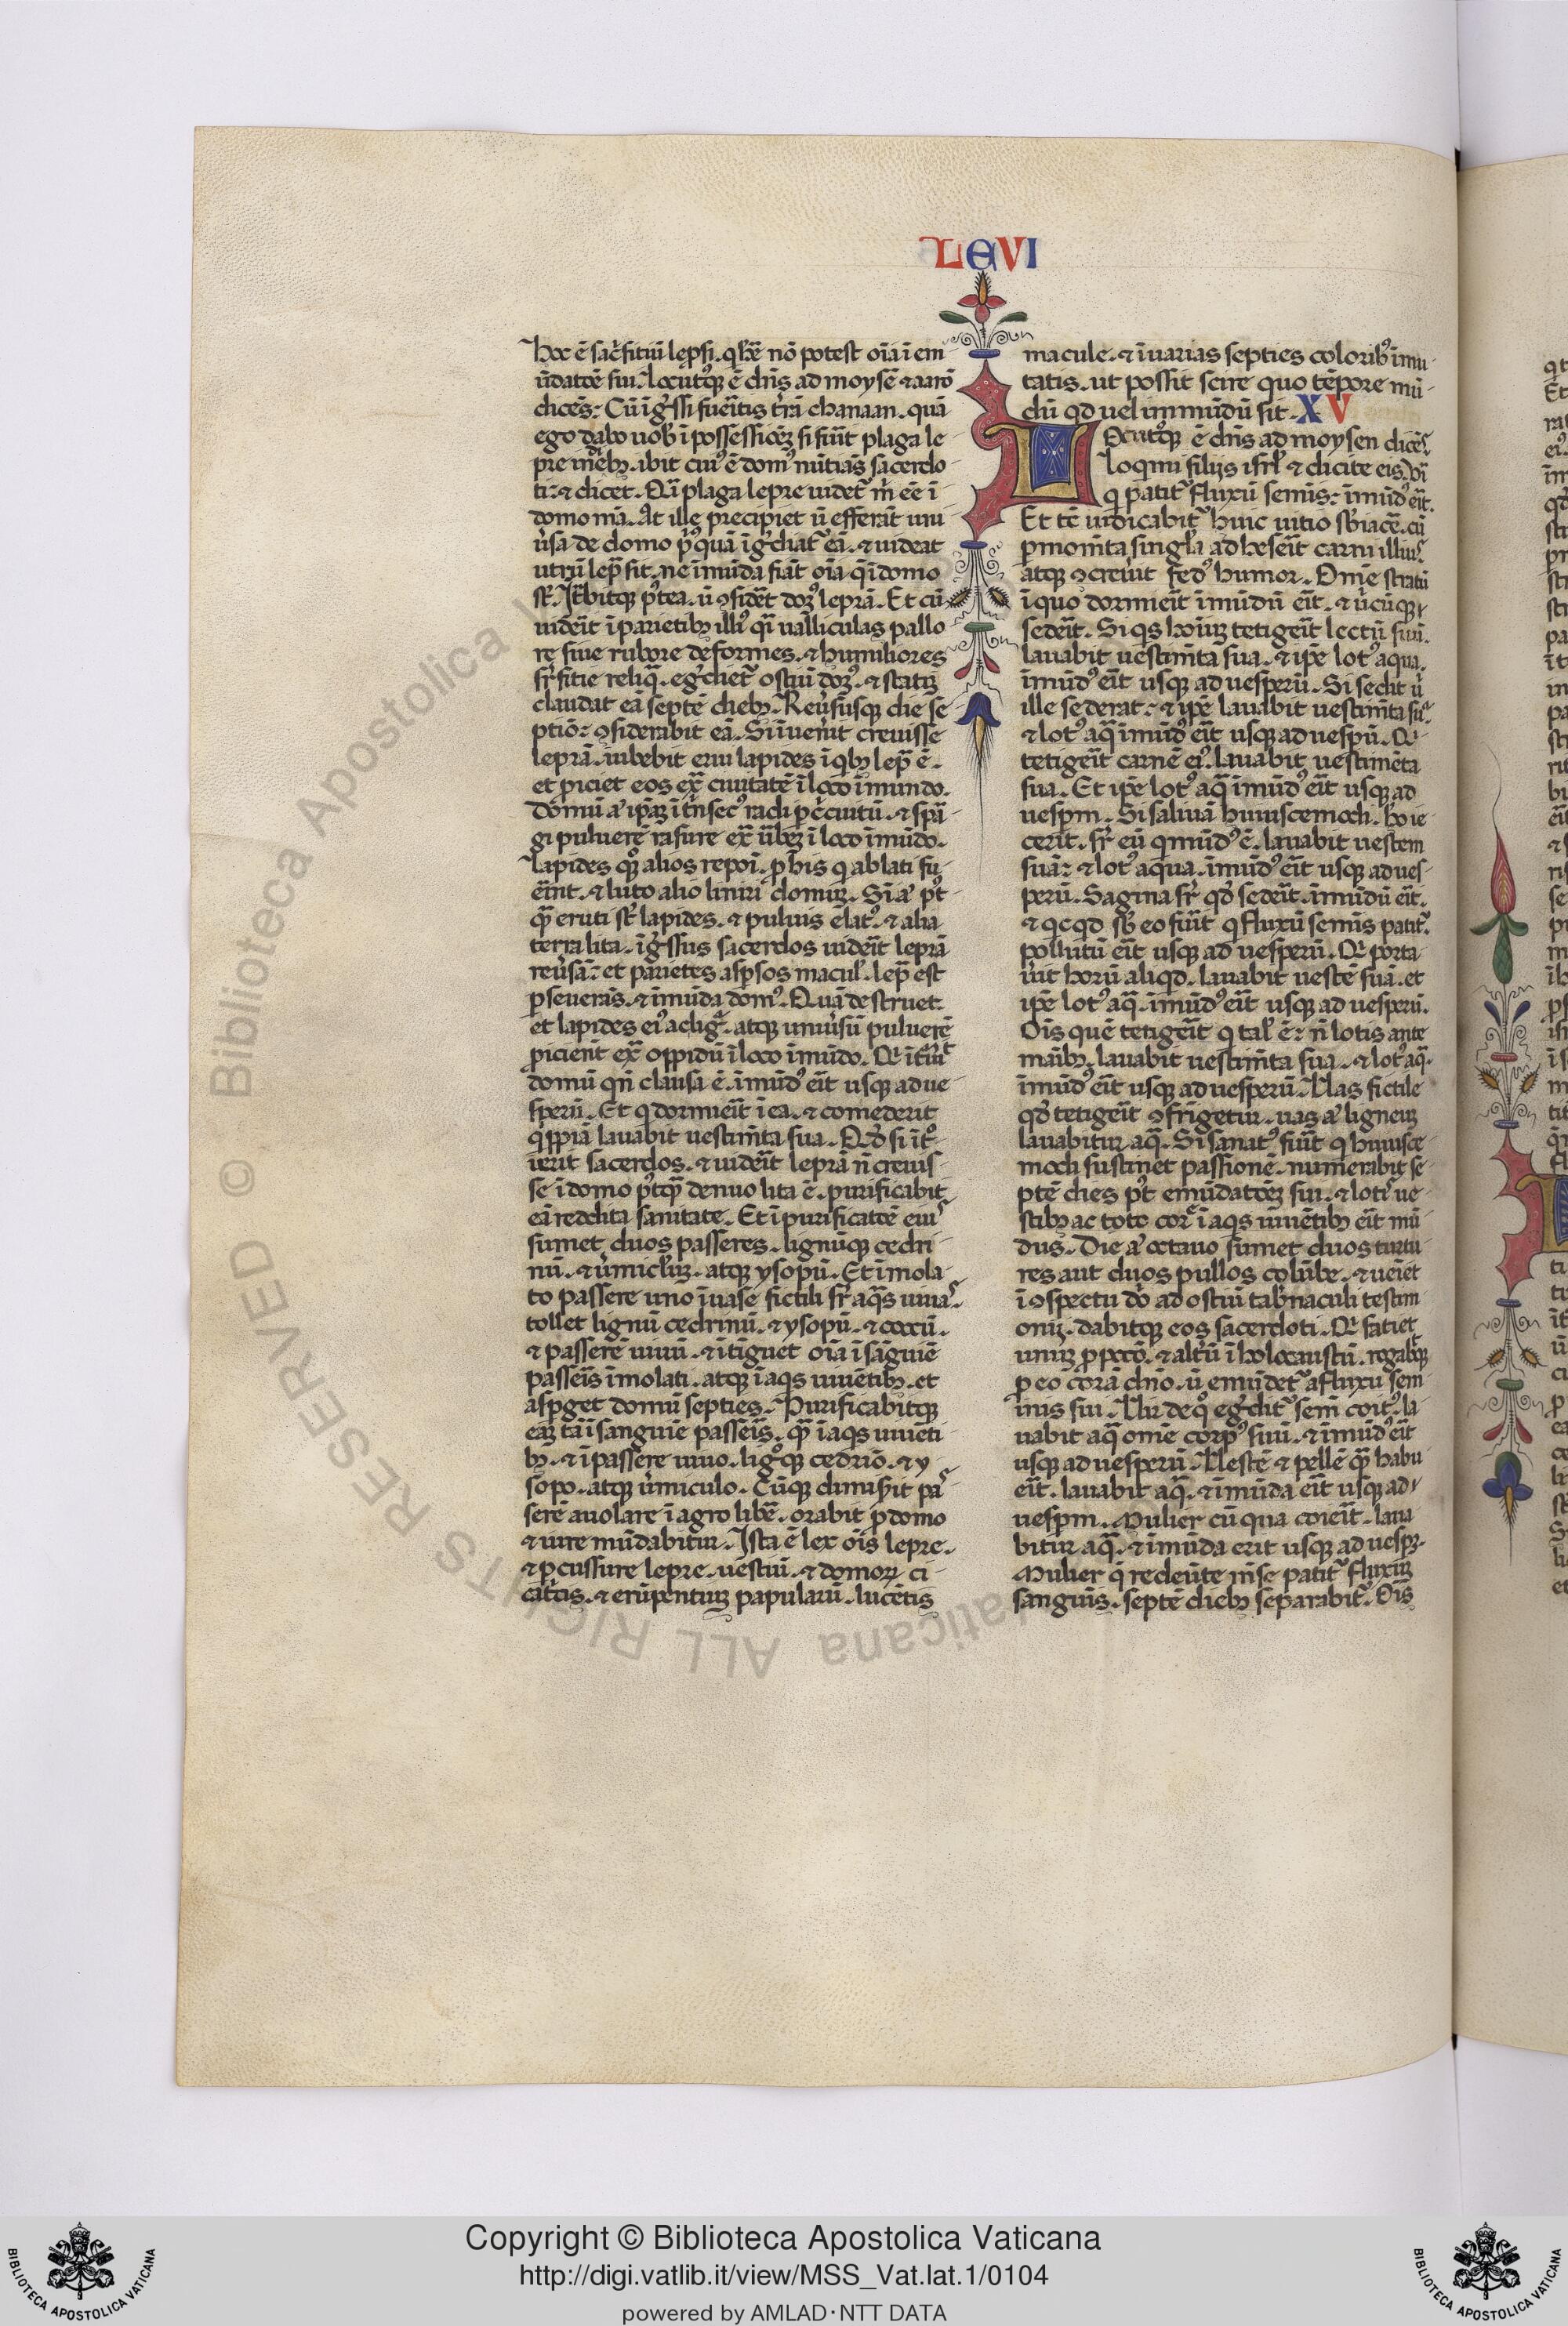 LEVI
hoc ē sac̄fitiū lep̄si. q̄ h̄re nō potest oīa ī em
ūdatōē sui. Locutꝰqꝫ ē dn̄s ad moysē ⁊ aarō
dicēs: Cū īgͥssi fuēitis tr̄ā chanaan. quā
ego dabo uob̄ ī possessiōēꝫ si fūit plaga le
pre ī edībꝫ. ibit cuiꝰ ē domꝰ nūtiās sacerdo
ti: ⁊ dicet. Q̄i plaga lepre uidetᷣ m̄ eē ī
domo mā. At ille precipiet ū efferāt uni
ūsa de domo pͥꝰquā īgͥdiatᷣ eā. ⁊ uideat
utrū lep̄ sit. ne īmūda fiāt oīa q̄ ī domo
st̄. Itͣbitqꝫ pꝰtea. ū ꝯsidēt doꝫꝰ leprā. Et cū
uidēit ī parietibꝫ illiꝰ q̄i ualliculas pallo
re siue rubore deformes. ⁊ humiliores
sr̄fitie reliq̄. egͥdietᷣ ostiū doꝫꝰ. ⁊ statiꝫ
claudat eā septē diebꝫ. Reūsusqꝫ die se
ptīo: ꝯsiderabit eā. Si īuen̄it creuisse
leprā. iubebit erui lapides ī qͥbꝫ lep̄ ē.
et ꝓiciet eos ex̄ ciuitatē ī loco īmundo.
domū aͣ ip̄aꝫ ītͥnsecꝰ radi ꝑ cͥcuitū. ⁊ spā
gi puluerē rasure ex̄ ūbeꝫ ī loco īmūdo.
lapides qꝫ alios repoī. ꝓ his q ablati fu
ēint. ⁊ luto alio liniri domuꝫ. Si aͣ pꝰt
q̄ eruti st̄ lapides. ⁊ puluis elatꝰ. ⁊ alia
terra lita. īgͥssus sacerdos uidēit leprā
reūsā: et parietes asꝑsos maculꝭ. lep̄ est
ꝑseuerās. ⁊ īmūda domꝰ. Quā destruet.
et lapides eiꝰ ac ligͣ. atqꝫ uniūsū puluerē
ꝓicient ex̄ oppidū ī loco īmūdo. Q̄ ītͣūit
domū qn̄ clausa ē. īmūdꝰ eīt usqꝫ ad ue
sperū. Et q dormiēit ī ea. ⁊ comederit
qͥppiā lauabit uestim̄ta sua. Qd̄ si ītͦ
ierit sacerdos. ⁊ uidēit leprā n̄ creuis
se ī domo pꝰtq̄ denuo lita ē. purificabit
eā reddita sanitate. Et ī purificatōē eiuꝰ
sumet duos passeres. lignūqꝫ cedri
nū. ⁊ ūmicl̄uꝫ. atqꝫ ysopū. Et īmola
to passere uno ī uase fictili sr̄ aq̄s uiuaˢ.
tollet lignū cedrinū. ⁊ ysopū. ⁊ coccū.
⁊ passerē uiuū. ⁊ ītiguet oīa ī sāguiē
passēis īmolati. atqꝫ ī aqͥs uiuētibꝫ. et
asꝑget domū septies. Purificabitqꝫ
eaꝫ tā ī sanguiē passēis. q̄ ī aqͥs uiuēti
bꝫ. ⁊ ī passere uiuo. ligͦqꝫ cedrīo. ⁊ y
sopo. atqꝫ ūmiculo. Cūqꝫ dimiserit paˢ
serē auolare ī agro libē. orabit ꝓ domo
⁊ iure mūdabitur. Ista ē lex oīs lepre.
⁊ ꝑcussure lepre. uestiū. ⁊ domoꝝ ci
catͥcis. ⁊ erūpentiuꝫ papularū. lucētis
macule. ⁊ ī uarias septies coloribꝰ īmu
tatis. ut possit scire quo tēpore mū
dū qd uel immūdū sit. XV
Locutꝰqꝫ ē dn̄s ad moysen dicēs
Loqmi filijs isrl̄ ⁊ dicite eis. Vir
q patitᷣ fluxū semīs: īmūdꝰ eīt.
Et tē iudicabitᷣ huic uitio sb̄iacē. cū
ꝑ momta singl̄a adheseīt carni illiuꝰ
atqꝫ ꝯcreūit fedꝰ humor. Omē stratū
ī quo dormieīt īmūdū eīt. ⁊ ūcūqꝫ
sedēit. Si qͥs hoīuꝫ tetigeīt lectū suū.
lauabit uestim̄ta sua. ⁊ ip̄e lotꝰ aqua.
īmūdꝰ eīt usqꝫ ad uesperū. Si sedit ū
ille sederat: ⁊ ip̄e lauabit uestim̄ta suͣ.
⁊ lotꝰ aq̄ īmūdꝰ eīt usqꝫ ad uesꝑū. Q̄
tetigeīt carnē eiꝰ. lauabit uestimēta
sua. Et ip̄e lotꝰ aq̄ īmūdꝰ eīt usqꝫ ad
uesꝑm. Si saliuā huiuscemodi. hō ie
cerit. sr̄ eū q mūdꝰ ē. lauabit uestem
suā: ⁊ lotꝰ aqua. īmūdꝰ eīt usqꝫ ad ues
perū. Sagma sr̄ qd̄ sedeīt. īmūdū eīt.
⁊ qͥcqd sb̄ eo fūit q fluxū semīs patitᷣ.
pollutū eīt usqꝫ ad uesperū. Q̄ porta
ūit horū aliqd. lauabit uestē suā. et
ip̄e lotꝰ aq̄. īmūdꝰ eīt usqꝫ ad uesperū.
Oīs quē tetigeīt q talꝭ ē: n̄ lotis ante
māibꝫ. lauabit uestim̄ta sua. ⁊ lotꝰ aq̄.
īmūdꝰ eīt usqꝫ ad uesperū. Uas fictile
qd̄ tetigeīt ꝯfrīgetur. uas aͣ ligneuꝫ
lauabitur aq̄. Si sanatꝰ fūit q huiusce
modi sustinet passionē. numerabit se
ptē dies pꝰt emūdatōeꝫ sui. ⁊ lotꝭ ue
stibꝫ ac toto corꝑe ī aqͥs uiuētibꝫ eīt mū
dus. Die aͣ octauo sumet duos turtu
res aut duos pullos colūbe. ⁊ uēiet
ī ꝯspectu dō ad ostiū tab̄naculi testim
onij. dabitqꝫ eos sacerdoti. Q̄ fatiet
unuꝫ ꝓ pccō. ⁊ altͥū ī holocaustū. rogabitqꝫ
ꝓ eo corā dn̄o. ū emūdetᷣ a fluxu sem
inis sui. Uir de qͦ egͥditᷣ sem̄ coitꝰ. la
uabit aq̄ omē corpꝰ suū. ⁊ īmūdꝰ eīt
usqꝫ ad uesperū. Uestē ⁊ pellē q̄ habu
eīt. lauabit aq̄. ⁊ īmūda eīt usqꝫ ad
uesꝑm. Mulier cū qua coieīt. laua
bitur aq̄. ⁊ īmūda erit usqꝫ ad uesꝑꝫ.
Mulier q̄ redeūte m̄se patitᷣ fluxuꝫ
sanguīs. septē diebꝫ separabitᷣ. Oīs
Copyright © Biblioteca Apostolica Vaticana
http://digi.vatlib.it/view/MSS_Vat.lat.1/0104
powered by AMLAD·NTT DATA
BIBLIOTECA APOSTOLICA VATICANA
BIBLIOTECA APOSTOLICA VATICANA
ALL RIGHTS RESERVED © Biblioteca Apostolica Vaticana